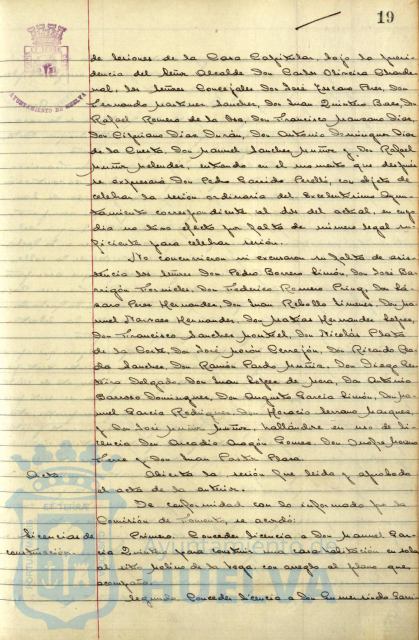 19
AYUNTAMIENTO DE HUELVA
de sesiones de la Casa Capitular, bajo la presi-
dencia del Señor Alcalde Don Carlos Oliveira Chardenal,
los Señores Concejales Don José Lozano Pérez, Don
Fernando Martínez Sanchez, Don Juan Quintero Baez, Don
Rafael Romero de la Osa, Don Francisco Manzano Díaz,
Don Cipriano Díaz Durán, Don Antonio Domínguez Díaz
de la Cueste, Don Manuel Sanchez Muñoz y Don Rafael
Muñoz Melendez, entrando en el momento que después
se expresará Don Pedro Garrido Perelló, con objeto de
celebrar la sesión ordinaria del Excelentísimo Ayun-
tamiento correspondiente al dia del actual, en cuyo
dia no tuvo efecto por falta de número legal su-
ficiente para celebrar sesión.
No concurrieron ni excusaron su falta de asis-
tencia los señores Don Pedro Borrero Limón, Don José Ba-
rrigón Fornieles, Don Federico Romero Don
Perez Hernandez, Don Juan Rebollo Jimenez, Don Ma-
nuel Narvaez Hernandez, Don Matías Hernandez Lopez,
Don Francisco Sanchez Montiel, Don Nicolás Plaza
de la Corte, Don José Morón Cerrejón, Don Ricardo
Sanchez, Don Ramón Pardo Don Diego
Delgado, Don Juan Lopez de Mora, Don Antonio
Barroso Domínguez, Don Augusto García Limón, Don Ma-
nuel García Rodríguez, Don Horacio Serrano Marquez,
y Don José Muñoz Muñoz, hallándose en uso de li-
cencia Don Arcadio Aragón Gomez, Don Onofre
y Don Juan
Acta. Abierta la sesión fué leida y aprobada
el acta de la anterior.
De conformidad con lo informado por la
Comisión de Fomento, se acordó:
Licencias de Primero. Conceder licencia a Don Manuel Gar-
construcción. cía para construir una casa habitación en solar
al sitio Molino de la Vega, con arreglo al plano que
acompaña.
Segundo. Conceder licencia a Don Gumersindo
HUELVA